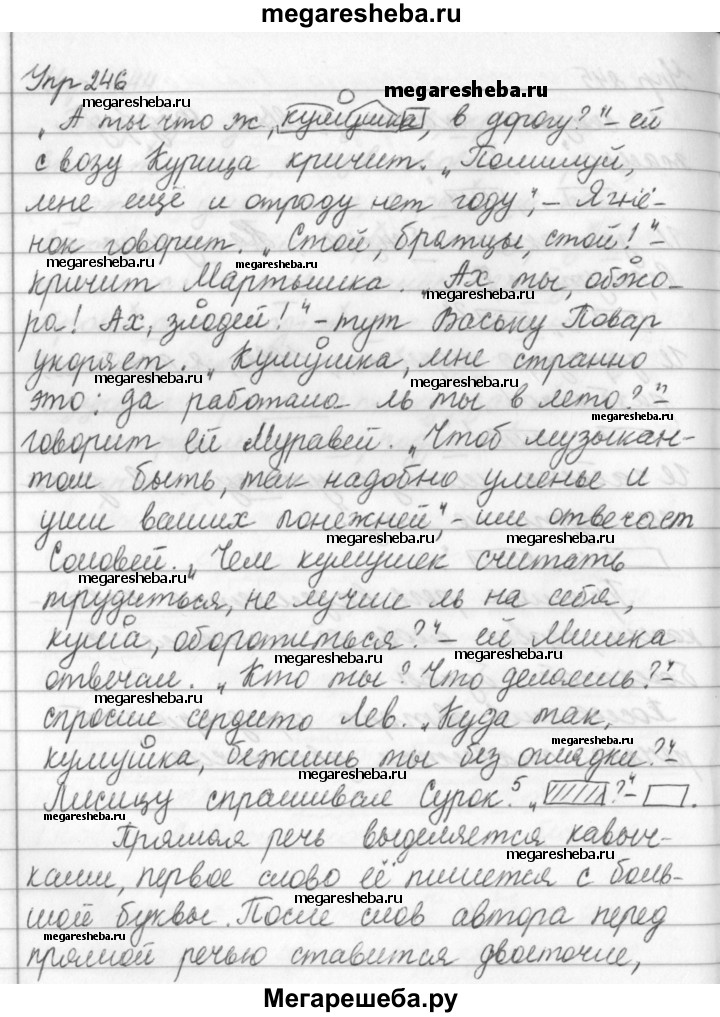 megaresheba.ru
Упр 246
megaresheba.ru
megaresheba.ru
„А ты что ж, кумушка, в дорогу?“ – ей
с возу Курица кричит. „Помилуй,
megaresheba.ru
мне ещё и отроду нет году“, – Ягнё-
нок говорит. „Стой, братцы, стой!“ –
megaresheba.ru
megaresheba.ru
кричит Мартышка. „Ах ты, обжо-
megaresheba.ru
ра! Ах, злодей!“ – тут Ваську Повар
укоряет. „Кумушка, мне странно
megaresheba.ru
megaresheba.ru
это: да работала ль ты в лето?“ –
megaresheba.ru
говорит ей Муравей. „Чтоб музыкан-
том быть, так надобно уменье и
уши ваших понежней“, – им отвечает
megaresheba.ru
megaresheba.ru
Соловей. „Чем кумушек считать
megaresheba.ru
трудиться, не лучше ль на себя,
megaresheba.ru
кума, оборотиться?“ – ей Мишка
megaresheba.ru
megaresheba.ru
отвечал. „Кто ты? Что делаешь?“ –
megaresheba.ru
спросил сердито Лев. „Куда так,
кумушка, бежишь ты без оглядки?“ –
megaresheba.ru
Лисицу спрашивал Сурок.⁵ „ ?“ – .
megaresheba.ru
megaresheba.ru
Прямая речь выделяется кавыч-
megaresheba.ru
ками, первое слово её пишется с боль-
megaresheba.ru
шой буквы. После слов автора перед
megaresheba.ru
прямой речью ставится двоеточие,
megaresheba.ru
Мегарешеба.ру